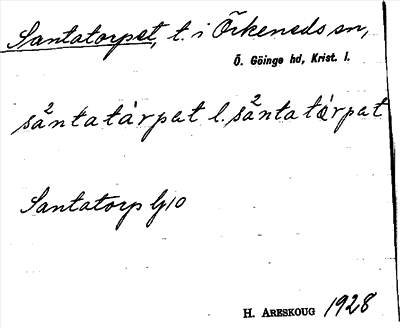 Santatorpet, t. i Örkeneds sn,
Ö. Göinge hd, Krist. l.
sä²ntatàrpat l. sä²ntatàrpat
Santatorp Gj10
H. ARESKOUG 1928